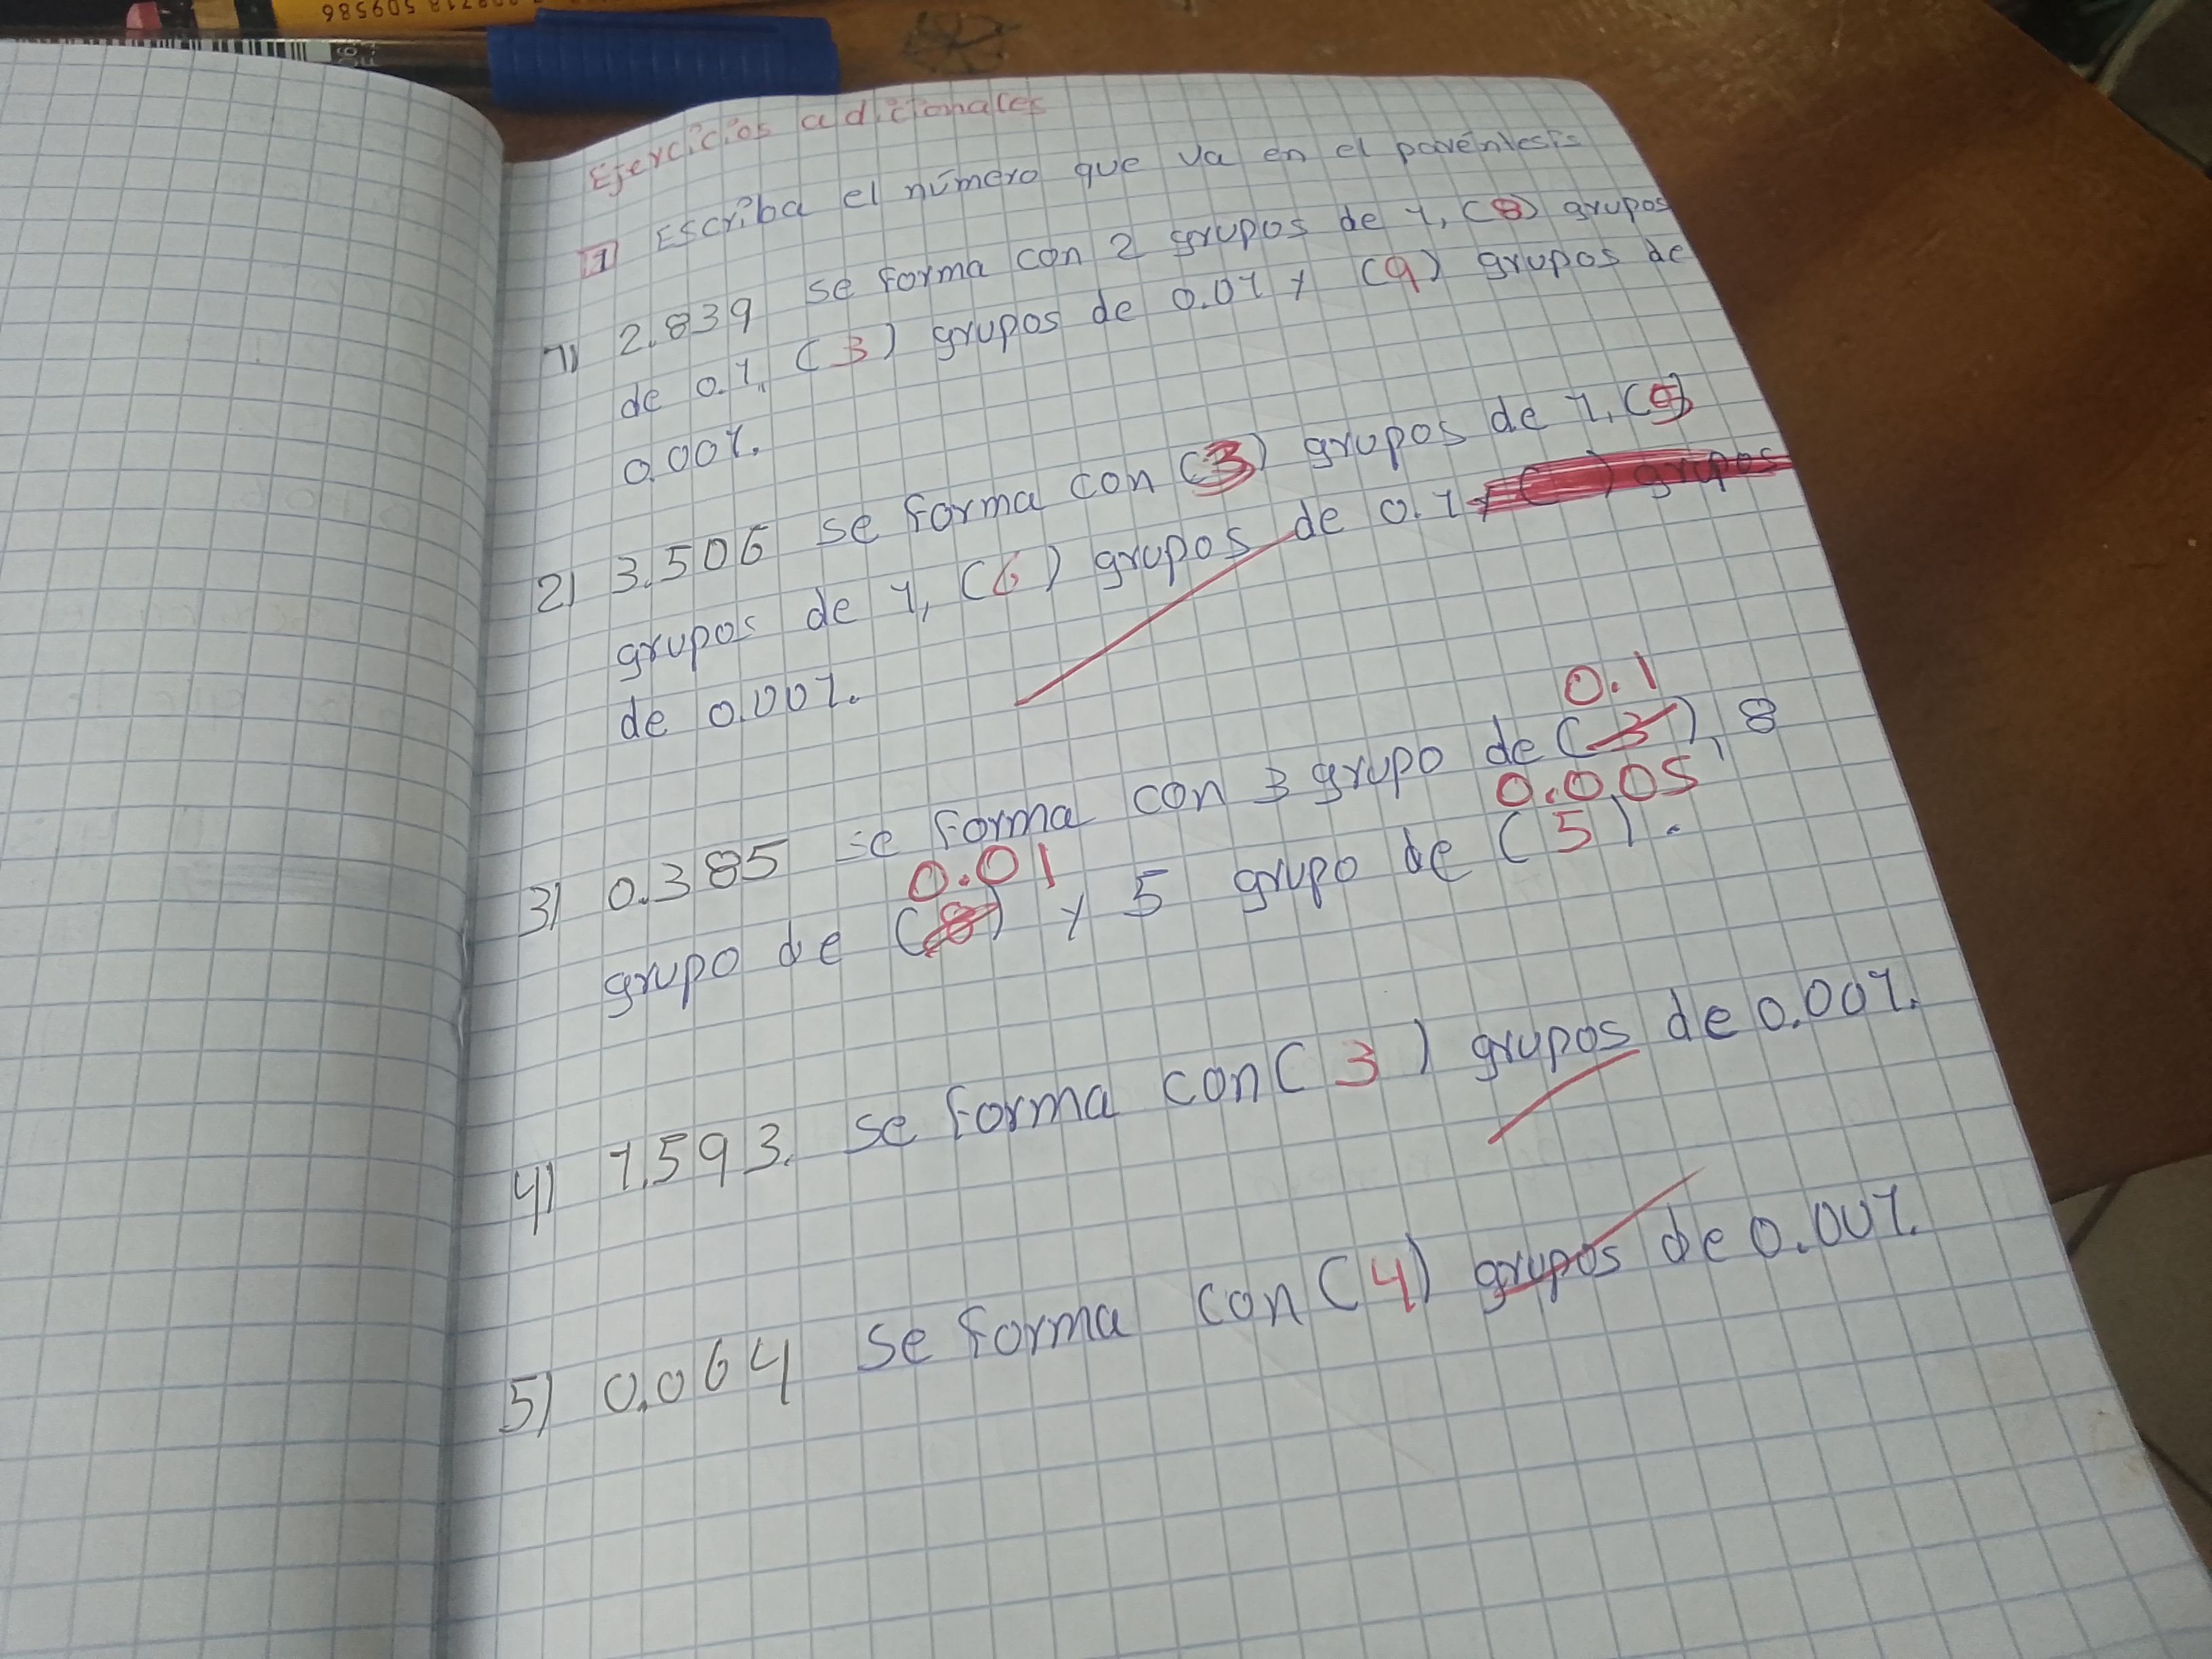 509586
Ejercicios adicionales
1 Escriba el número que va en el paréntesis
1) 2.839 se forma con 2 grupos de 1, (8) grupos
de 0.1, (3) grupos de 0.01 y (9) grupos de
0.001.
2) 3.506 se forma con (3) grupos de 1, (5)
grupos de 1, (6) grupos de 0.1 y ( ) grupos
de 0.001.
0.1
3) 0.385 se forma con 3 grupo de (3), 8
0.01 0.005
grupo de (8) y 5 grupo de (5).
4) 1.593. se forma con (3) grupos de 0.001.
5) 0.064 se forma con (4) grupos de 0.001.